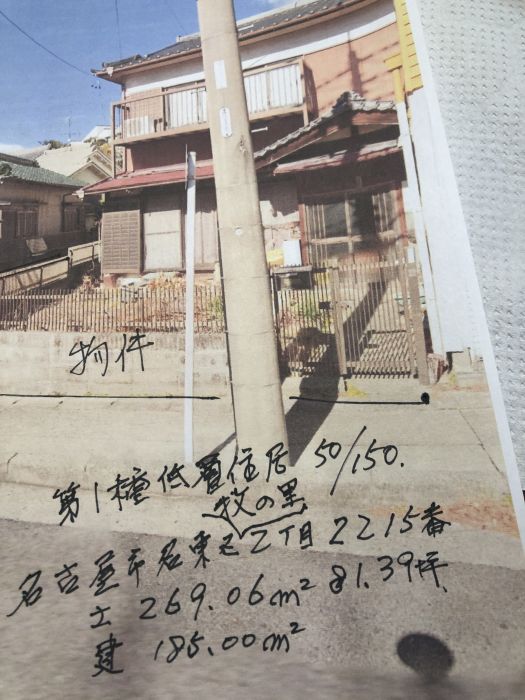 物件
第1種低層住居 50/150.
牧の里
名古屋市名東区2丁目2215番
土 269.06m² 81.39坪
建 185.00m²